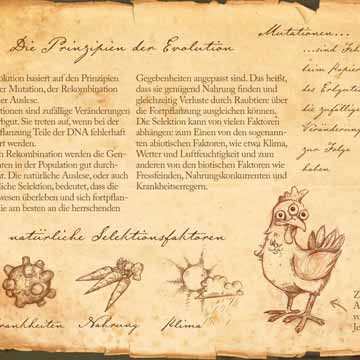 Die Prinzipien der Evolution
olution basiert auf den Prinzipien
er Mutation, der Rekombination
er Auslese.
tionen sind zufällige Veränderungen
bgut. Sie treten auf, wenn bei der
flanzung Teile der DNA fehlerhaft
rt werden.
h Rekombination werden die Gen-
nten in der Population gut durch-
t. Die natürliche Auslese, oder auch
liche Selektion, bedeutet, dass die
wesen überleben und sich fortpflan-
ie am besten an die herrschenden
Gegebenheiten angepasst sind. Das heißt,
dass sie genügend Nahrung finden und
gleichzeitig Verluste durch Raubtiere über
die Fortpflanzung ausgleichen können.
Die Selektion kann von vielen Faktoren
abhängen: zum Einen von den sogenann-
ten abiotischen Faktoren, wie etwa Klima,
Wetter und Luftfeuchtigkeit und zum
anderen von den biotischen Faktoren wie
Fressfeinden, Nahrungskonkurrenten und
Krankheitserregern.
Mutationen...
...sind Feh
beim Kopier
des Erbgutes
die zufällige
Veränderung
zur Folge
haben
natürliche Selektionsfaktoren
rankheiten
Nahrung
Klima
A
vo
Je